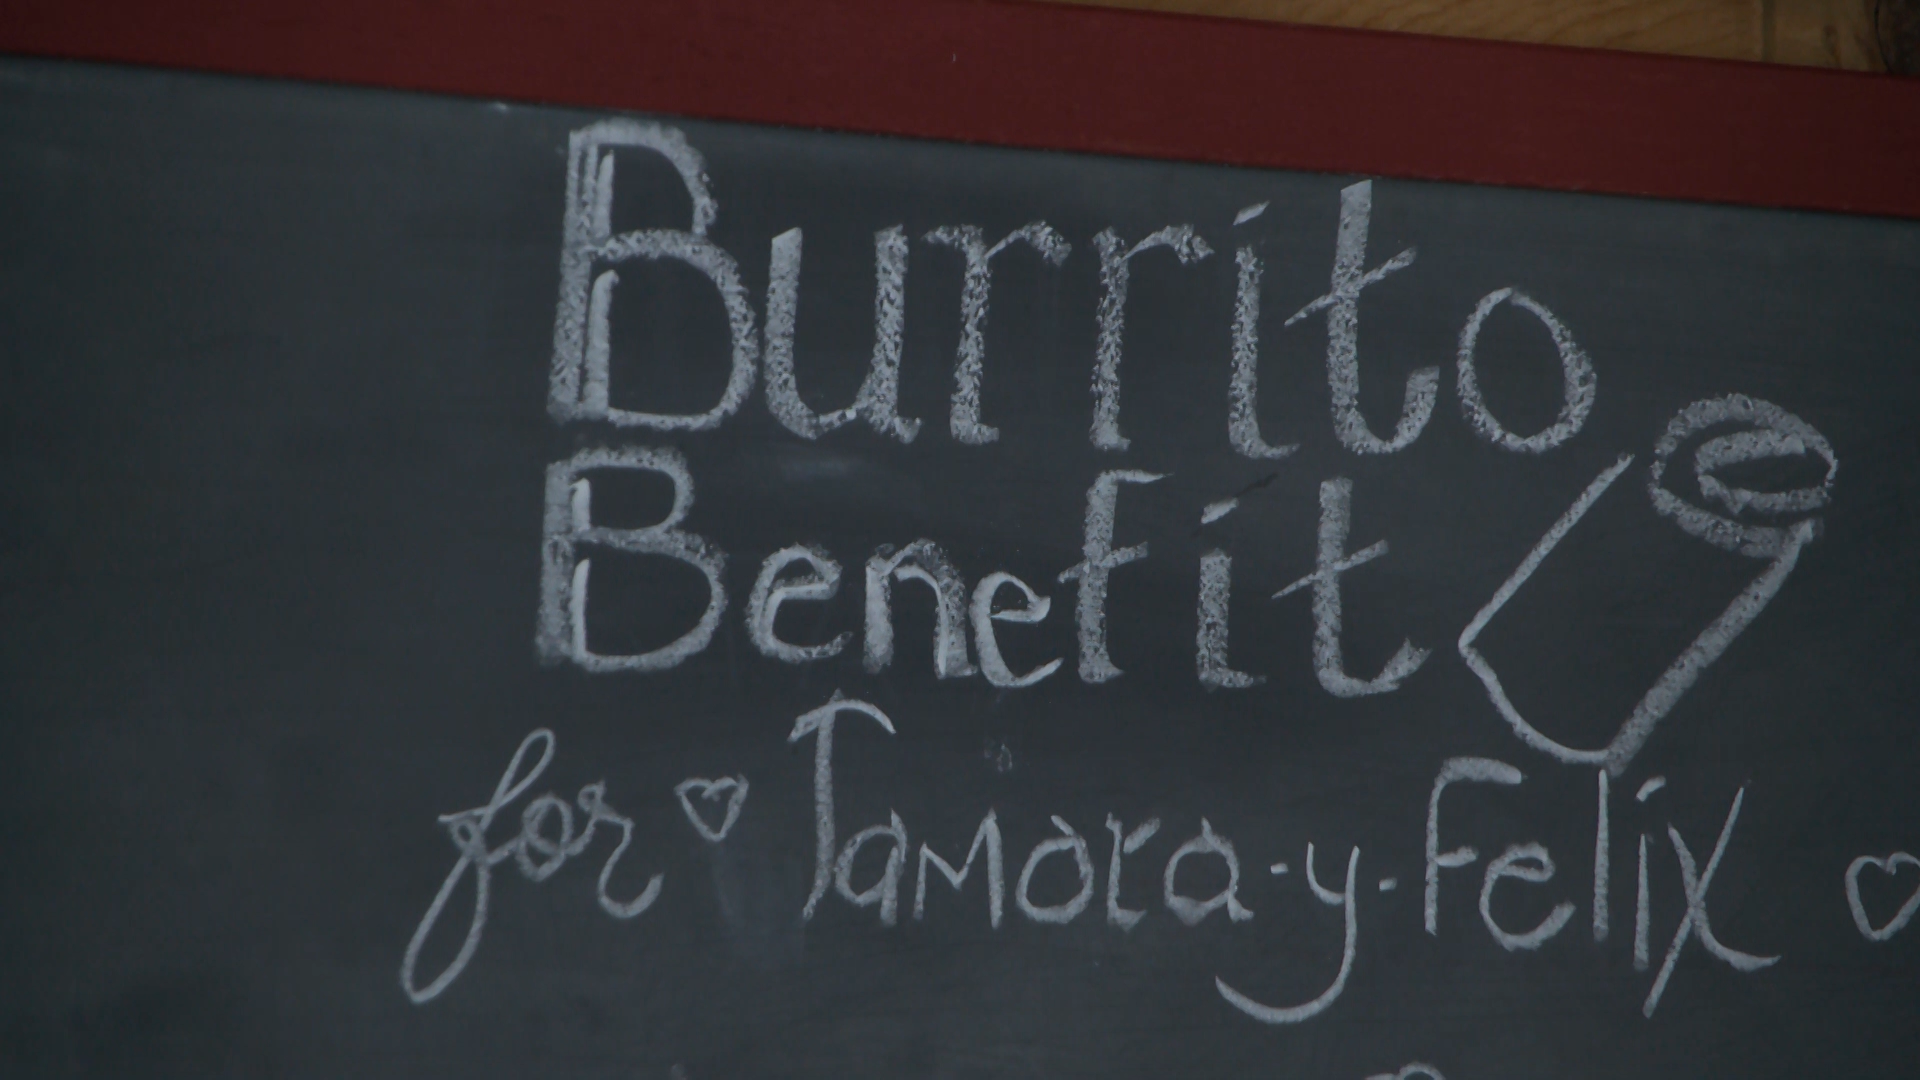 Burrito
Benefit
for Tamara-y-Felix